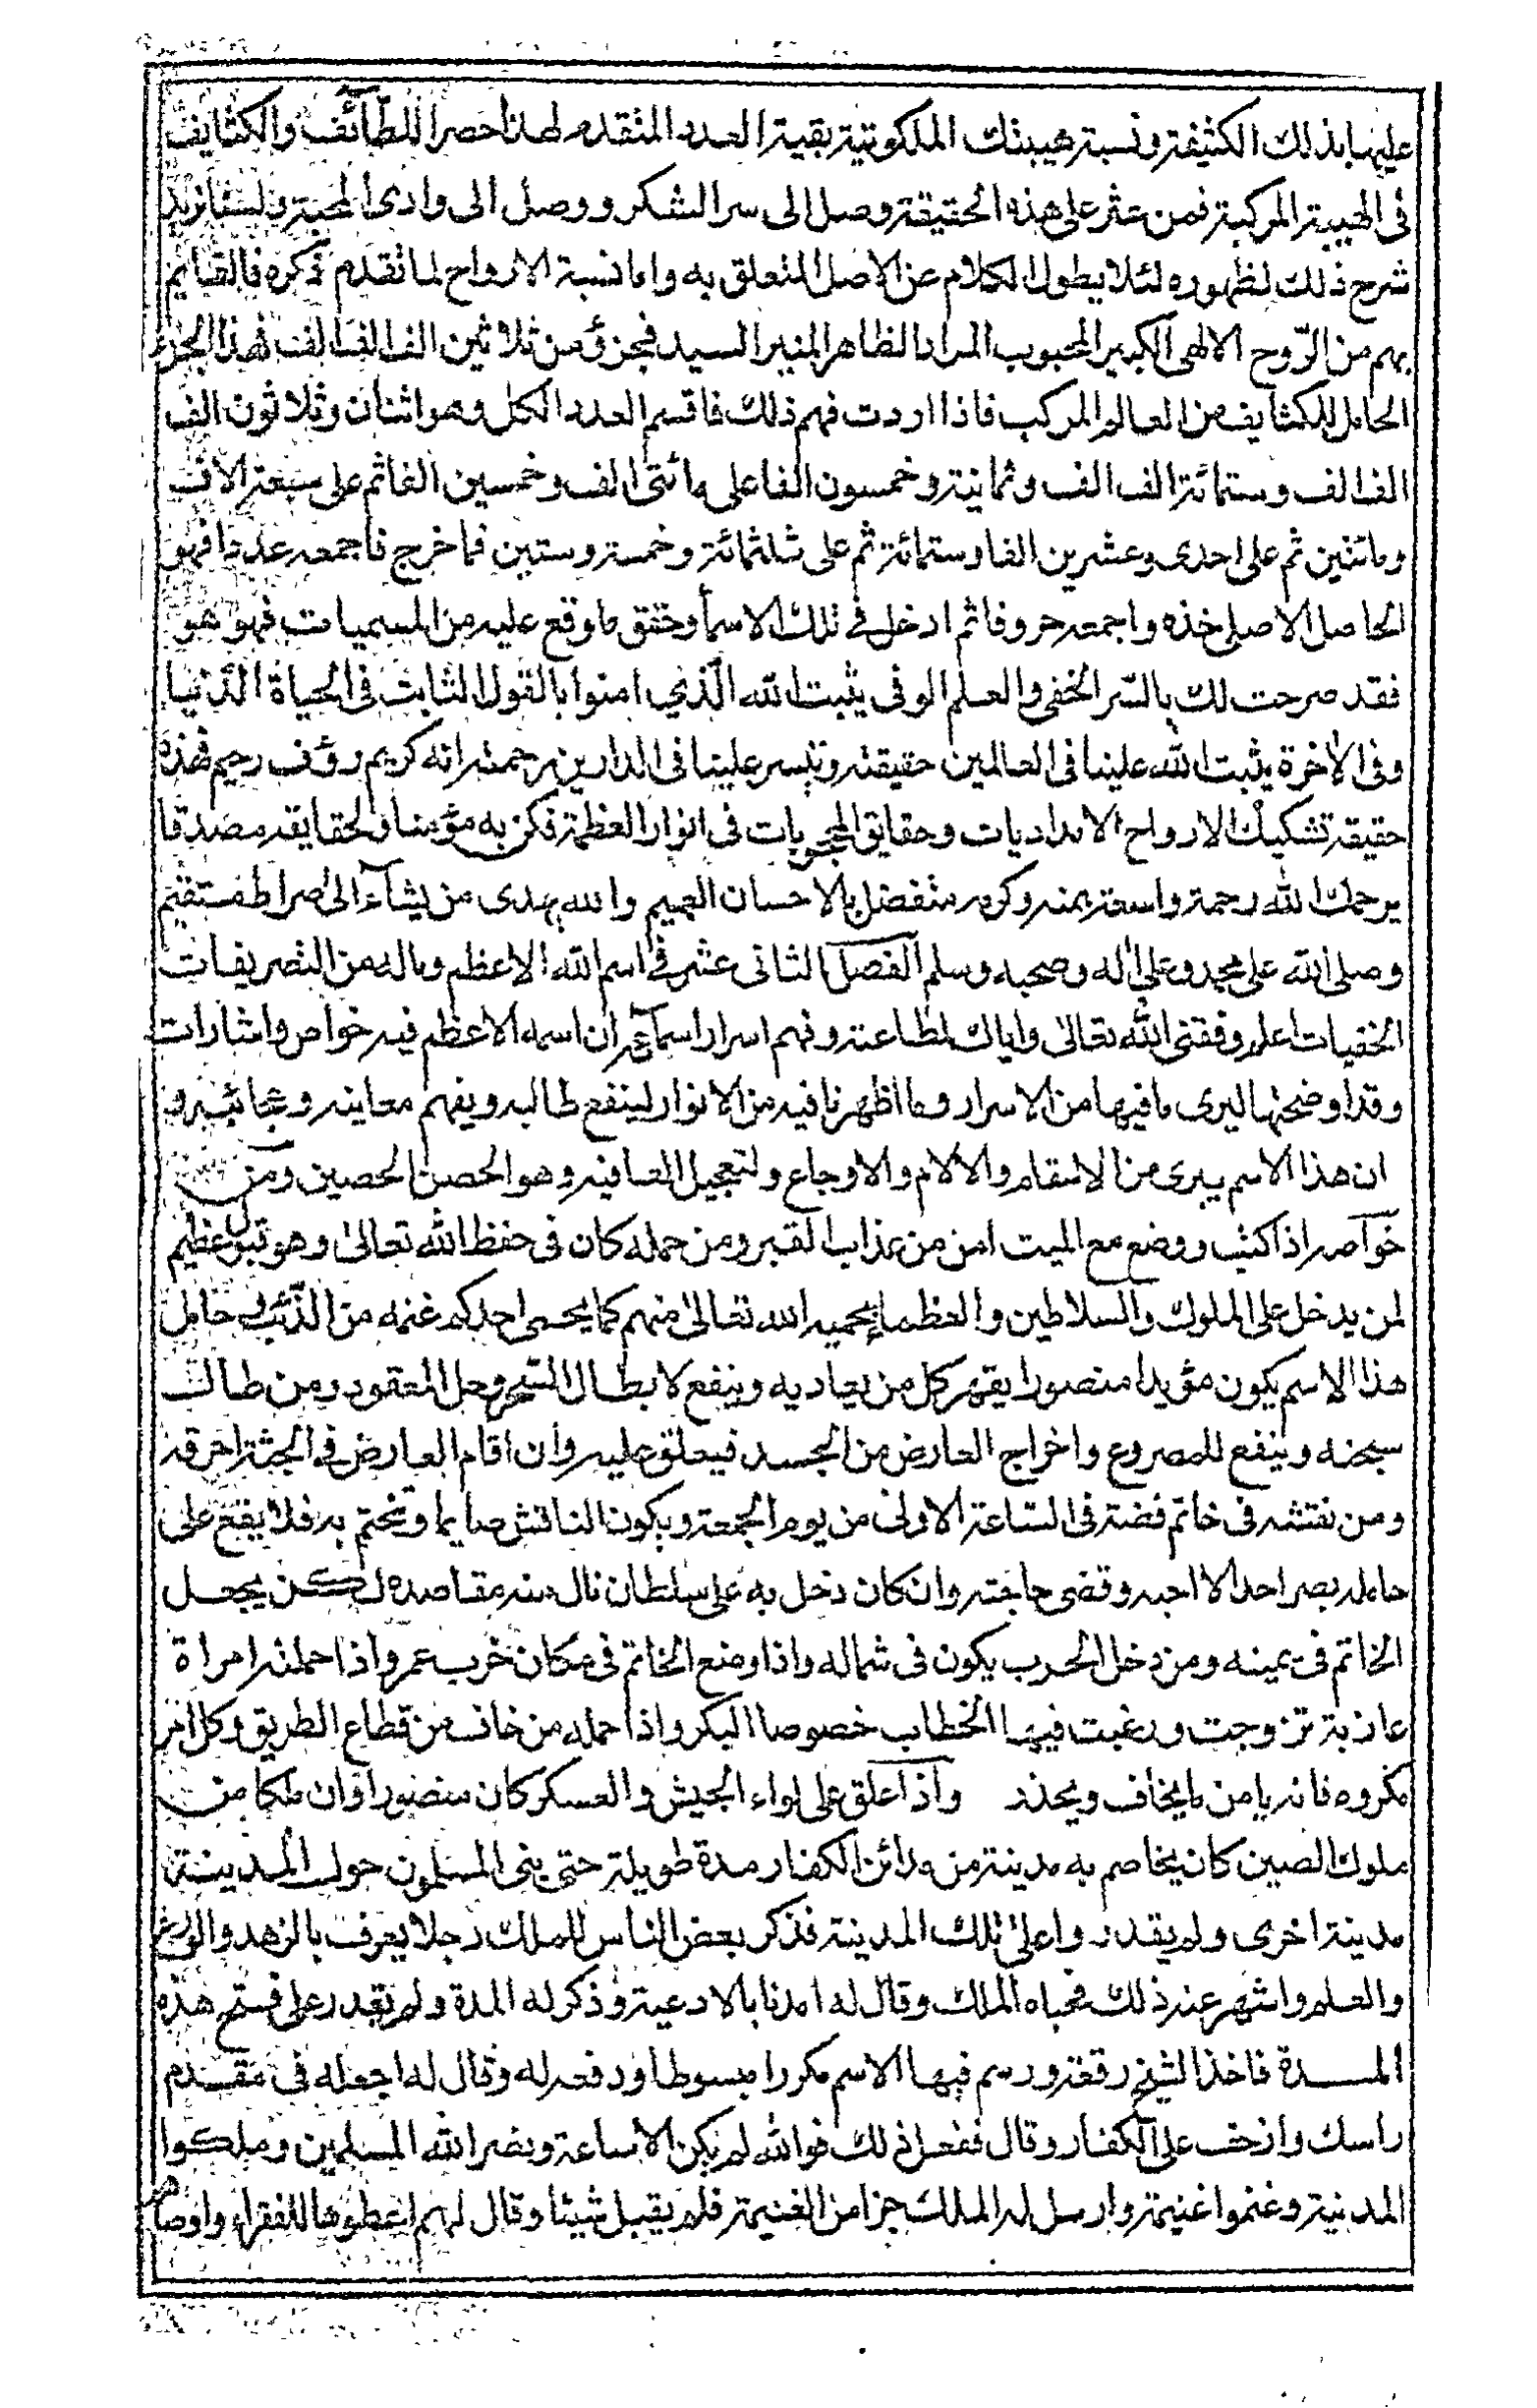 عليها بذلك الكثيفة ونسبة هيبتك الملكوتية بقية العدد المتقدم لهذا حصرا للطائف والكثايف
فى الهيبة المركبة فمن عثر على هذه الحقيقة وصل الى سر الشكر ووصل الى وادى المحبة ولسنا نريد
شرح ذلك لظهوره لئلا يطول الكلام عن الاصل المتعلق به واما نسبة الارواح لما تقدم ذكره فالقايم
بهم من الرّوح الالهى الكبير المحبوب المراد الظاهر المنير السيد فجزؤ من ثلاثين الف الف الف فهذا الجزء
الحامل للكثايف من العالم المركب فاذا اردت فهم ذلك فاقسم العدد الكل وهو اثنان وثلاثون الف
الف الف وستمائة الف الف وثمانية وخمسون الفا على مائتى الف وخمسين الفا ثم على سبعة الاف
وماتنين ثم على احدى وعشرين الفا وستمائة ثم على ثلثمائة وخمسة وستين فما خرج فاجمعه عددا فهو
الحاصل الاصلى خذه واجمعه حروفا ثم ادخل فى تلك الاسمأ وحقق ما وقع عليه من المسميات فهو هو
فقد صرحت لك بالسّر الخفى والعلم الوفى يثبت الله الّذين امنوا بالقول الثابت فى الحياة الدّنيا
وفى الاخرة يثبت الله علينا فى العالمين حقيقته وتيسر علينا فى الدارين برحمته انه كريم رؤف رحيم فهذه
حقيقة تشكيك الارواح الامداديات وحقايق المحجوبات فى انوار العظمة فكن به مؤمنا ولحقايقه مصدقا
يرحمك الله رحمة واسعة بمنه وكرمه متفضل بالاحسان العميم والله يهدى من يشآء الى صراط مستقيم
وصلى الله على محمد وعلى اله وصحبه وسلم الفصل الثانى عشر فى اسم الله الاعظم وماله من التصريفات
الخفيات اعلم وفقنى الله تعالى واياك لطاعته وفهم اسرار اسمآئه ان اسمه الاعظم فيه خواص واشارات
وقد اوضحتها ليرى ما فيها من الاسرار وما اظهرنا فيه من الانوار لينفع طالبه ويفهم معاينه وعجائبه و
ان هذا الاسم يبرى من الاسقام والالام والاوجاع ولتعجيل العافيه وهو الحصن الحصين ومن
خوآصه اذا كتب ووضع مع الميت امن من عذاب القبر ومن حمله كان فى حفظ الله تعالى وهو قبول عظيم
لمن يدخل على الملوك والسلاطين والعظماء يحميه الله تعالى منهم كما يحمى احدكم غنمه من الذّئب حامل
هذا الاسم يكون مؤيدا منصورا يقهر كل من يعاديه وينفع لابطال السّحر وحل المعقود ومن طالت
سجنه وينفع للمصروع واخراج العارض من الجسد فيعلق عليه وان اقام العارض فى الجثة احرقه
ومن نقشه فى خاتم فضة فى السّاعة الاولى من يوم الجمعة ويكون الناقش صايما وتختم به فلا يقع على
حامله بصر احد الا احبه وقضى حاجته وان كان دخل به على سلطان نال منه مقاصده لكن يجعل
الخاتم فى يمينه ومن دخل الحرب يكون فى شماله واذا وضع الخاتم فى مكان خرب عمر واذا حملته امراة
عازبة تزوجت ورغبت فيها الخطاب خصوصا البكر واذا حمله من خاف من قطاع الطريق وكل امر
مكروه فانه يامن ما يخاف ويحذر واذآ علق على لواء الجيش والعسكر كان منصورا وان ملكا من
ملوك الصين كان يخاصم به مدينة من مدائن الكفار مدة طويلة حتى بنى المسلمون حول المدينة
مدينة اخرى ولم يقدروا على تلك المدينة فذكر بعض الناس للملك رجلا يعرف بالزهد والورع
والعلم واشهر عند ذلك فجاه الملك وقال له امدنا بالادعية وذكر له المدة ولم نقدر على فتح هذه
المدة فاخذ الشيخ رقعة ورسم فيها الاسم مكررا مبسوطا ودفعه له وقال له اجعله فى مقدم
راسك وازحف على الكفار وقال ففعل ذلك فوالله لم يكن الا ساعة ونصر الله المسلمين وملكوا
المدينة وغنموا غنيمة وارسل له الملك جزا من الغنيمة فلم يقبل شيئا وقال لهم اعطوها للفقراء واوصاهم